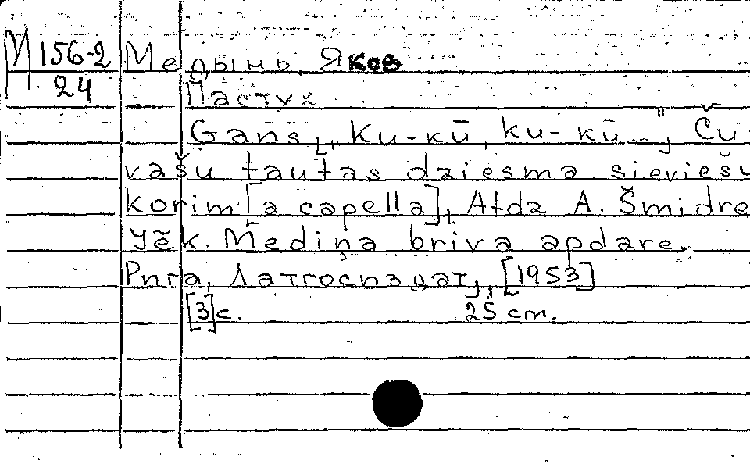 М 156-2 Медынь Яков
24
Пастух
Gans [„Ku-kū, ku-kū...", Ču
vašu tautas dziesma sieviešu
korim [a capella], Atdz A. Šmidre
Jēk. Mediņa briva apdare.
Рига, Латгосиздат, [1953]
[3]с. 25 cm.